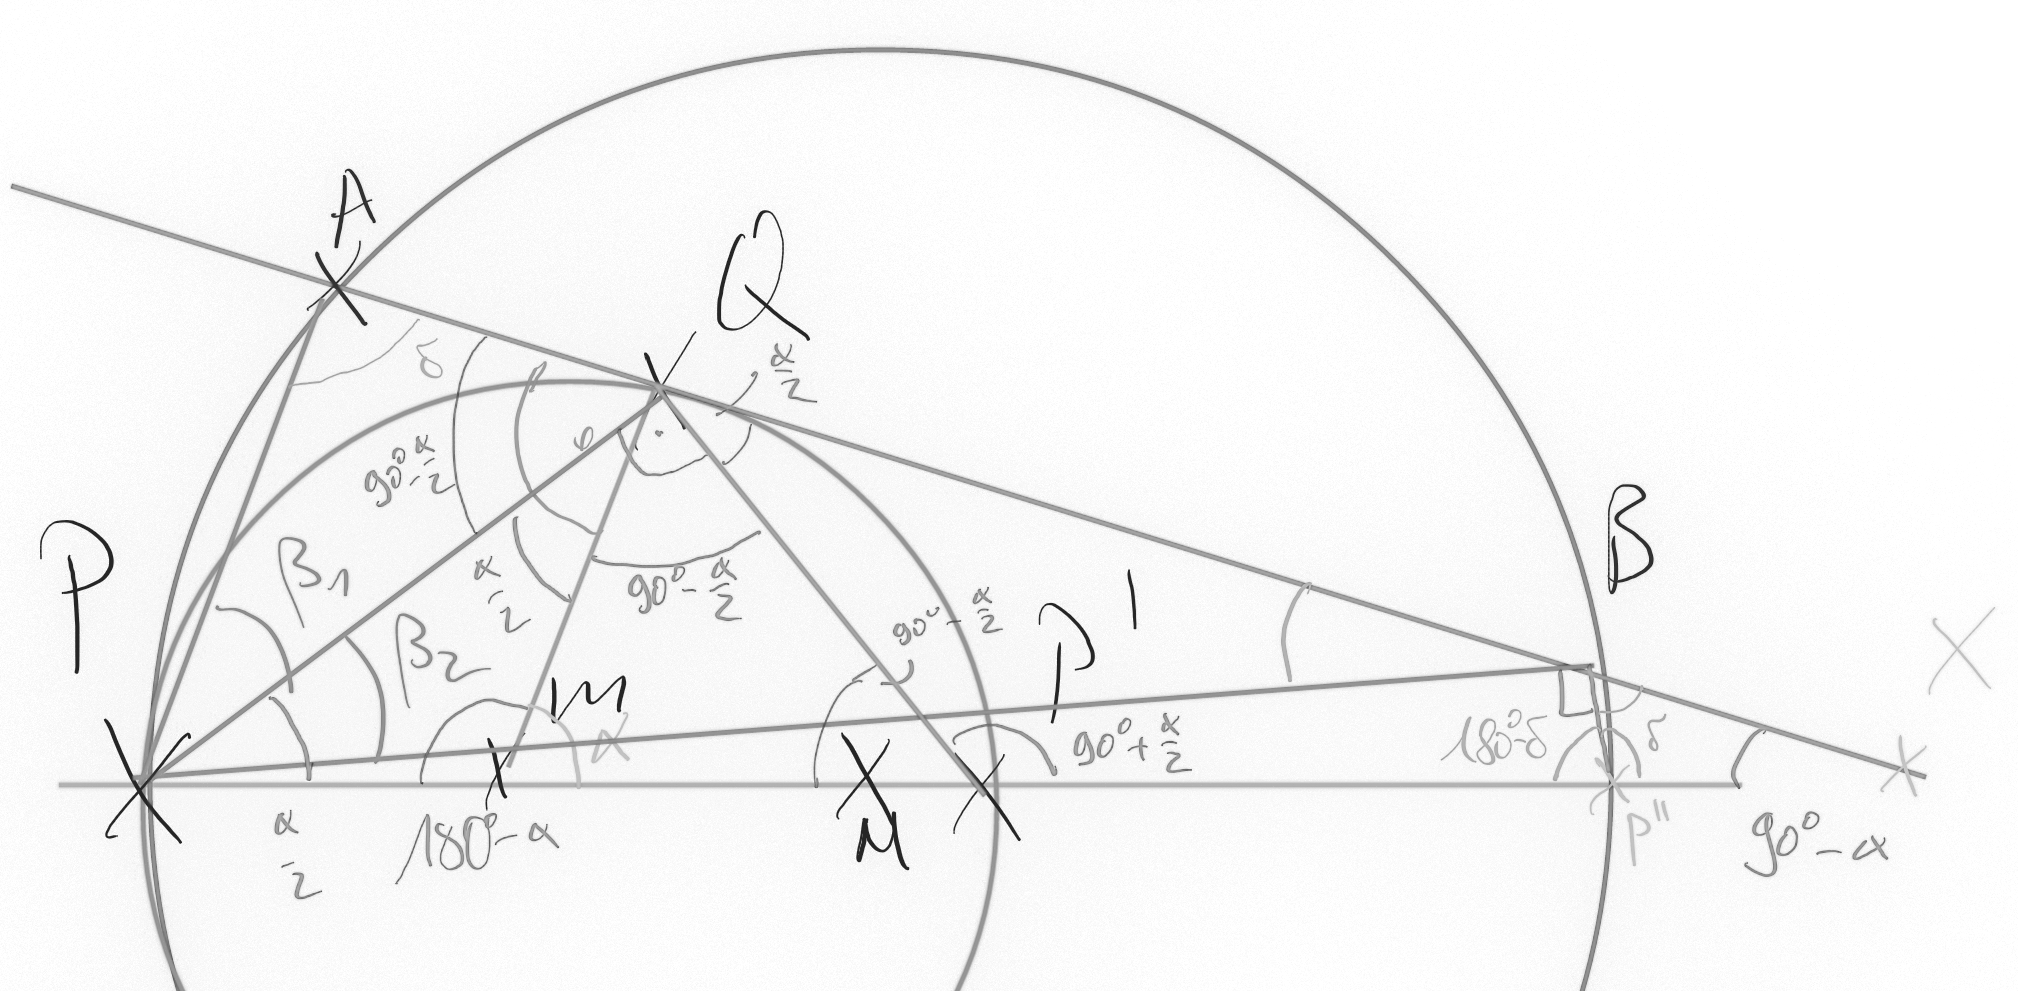 A
Q
α/2
δ
φ
90°-α/2
P
β₁
α/2
90°-α/2
β₂
90°-α/2
P'
B
m
α
90°+α/2
180°-δ
δ
α/2
180°-α
M
P''
90°-α